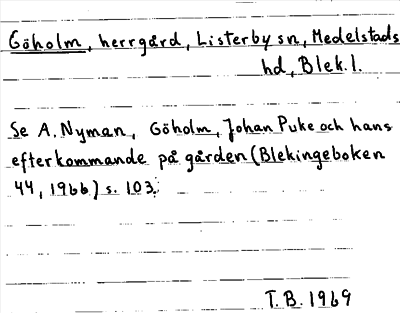 Göholm, herrgård, Listerby sn, Medelstads
hd, Blek.l.
Se A. Nyman, Göholm, Johan Puke och hans
efterkommande på gården (Blekingeboken
44, 1966) s. 103.
T.B. 1969